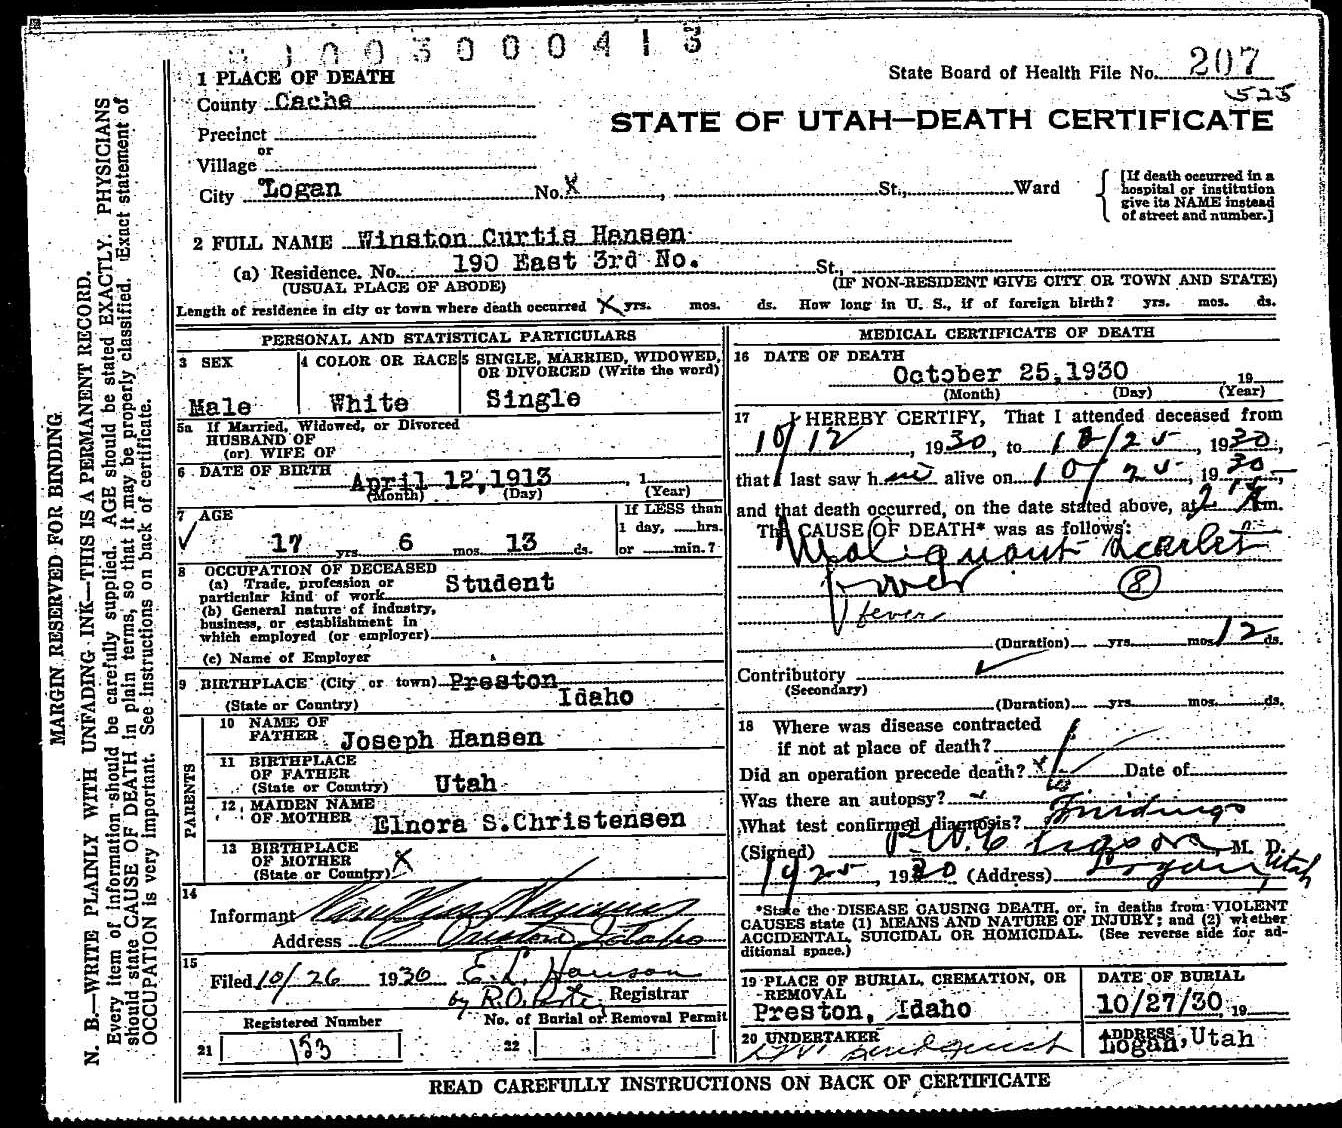 1003000413
1 PLACE OF DEATH
State Board of Health File No. 207
County Cache
525
STATE OF UTAH—DEATH CERTIFICATE
Precinct
or
Village
City Logan No. X St., Ward
[If death occurred in a
hospital or institution
give its NAME instead
of street and number.]
2 FULL NAME Winston Curtis Hansen
(a) Residence. No. 190 East 3rd No. St.,
(USUAL PLACE OF ABODE) (IF NON-RESIDENT GIVE CITY OR TOWN AND STATE)
Length of residence in city or town where death occurred X yrs. mos. ds. How long in U. S., if of foreign birth? yrs. mos. ds.
PERSONAL AND STATISTICAL PARTICULARS
3 SEX
Male
4 COLOR OR RACE
White
5 SINGLE, MARRIED, WIDOWED,
OR DIVORCED (Write the word)
Single
5a If Married, Widowed, or Divorced
HUSBAND OF
(or) WIFE OF
6 DATE OF BIRTH April 12, 1913 , 1
(Month) (Day) (Year)
7 AGE
17 yrs. 6 mos. 13 ds.
If LESS than
1 day, hrs.
or min.?
8 OCCUPATION OF DECEASED
(a) Trade, profession or
particular kind of work Student
(b) General nature of industry,
business, or establishment in
which employed (or employer)
(c) Name of Employer
9 BIRTHPLACE (City or town) Preston
(State or Country) Idaho
PARENTS
10 NAME OF
FATHER Joseph Hansen
11 BIRTHPLACE
OF FATHER
(State or Country) Utah
12 MAIDEN NAME
OF MOTHER Elnora S. Christensen
13 BIRTHPLACE
OF MOTHER
(State or Country) X
14
Informant
Address Preston Idaho
15
Filed 10/26 1930 E. L. Hanson
by R.O. Registrar
Registered Number No. of Burial or Removal Permit
21 183 22
MEDICAL CERTIFICATE OF DEATH
16 DATE OF DEATH
October 25, 1930 19
(Month) (Day) (Year)
17 I HEREBY CERTIFY, That I attended deceased from
10/12, 1930, to 10/25, 1930,
that I last saw him alive on 10/25, 1930,
and that death occurred, on the date stated above, at m.
The CAUSE OF DEATH* was as follows:
Malignant scarlet
fever 8
fever
(Duration) yrs. mos. 12 ds.
Contributory
(Secondary)
(Duration) yrs. mos. ds.
18 Where was disease contracted
if not at place of death?
Did an operation precede death? Date of
Was there an autopsy?
What test confirmed diagnosis? Findings
(Signed) M. D.
10/25, 1930 (Address) Logan, Utah
*State the DISEASE CAUSING DEATH, or, in deaths from VIOLENT
CAUSES state (1) MEANS AND NATURE OF INJURY; and (2) whether
ACCIDENTAL, SUICIDAL OR HOMICIDAL. (See reverse side for ad-
ditional space.)
19 PLACE OF BURIAL, CREMATION, OR
REMOVAL
Preston, Idaho
DATE OF BURIAL
10/27/30, 19
20 UNDERTAKER
ADDRESS
Logan, Utah
READ CAREFULLY INSTRUCTIONS ON BACK OF CERTIFICATE
MARGIN RESERVED FOR BINDING
N. B.—WRITE PLAINLY WITH UNFADING INK—THIS IS A PERMANENT RECORD.
Every item of information should be carefully supplied. AGE should be stated EXACTLY. PHYSICIANS
should state CAUSE OF DEATH in plain terms, so that it may be properly classified. Exact statement of
OCCUPATION is very important. See instructions on back of certificate.